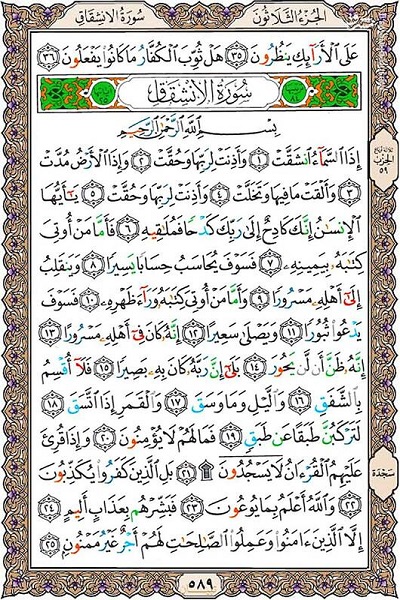 سُورَةُ الِانْشِقَاقِ
الجُزْءُ الثَّلَاثُونَ
عَلَى ٱلْأَرَآئِكِ يَنظُرُونَ ٣٥ هَلْ ثُوِّبَ ٱلْكُفَّارُ مَا كَانُوا۟ يَفْعَلُونَ ٣٦
سُورَةُ الِانْشِقَاقِ
بِسْمِ ٱللَّهِ ٱلرَّحْمَٰنِ ٱلرَّحِيمِ
إِذَا ٱلسَّمَآءُ ٱنشَقَّتْ ١ وَأَذِنَتْ لِرَبِّهَا وَحُقَّتْ ٢ وَإِذَا ٱلْأَرْضُ مُدَّتْ
٣ وَأَلْقَتْ مَا فِيهَا وَتَخَلَّتْ ٤ وَأَذِنَتْ لِرَبِّهَا وَحُقَّتْ ٥ يَٰٓأَيُّهَا
ٱلْإِنسَٰنُ إِنَّكَ كَادِحٌ إِلَىٰ رَبِّكَ كَدْحًا فَمُلَٰقِيهِ ٦ فَأَمَّا مَنْ أُوتِىَ
كِتَٰبَهُۥ بِيَمِينِهِۦ ٧ فَسَوْفَ يُحَاسَبُ حِسَابًا يَسِيرًا ٨ وَيَنقَلِبُ
إِلَىٰٓ أَهْلِهِۦ مَسْرُورًا ٩ وَأَمَّا مَنْ أُوتِىَ كِتَٰبَهُۥ وَرَآءَ ظَهْرِهِۦ ١٠ فَسَوْفَ
يَدْعُوا۟ ثُبُورًا ١١ وَيَصْلَىٰ سَعِيرًا ١٢ إِنَّهُۥ كَانَ فِىٓ أَهْلِهِۦ مَسْرُورًا ١٣
إِنَّهُۥ ظَنَّ أَن لَّن يَحُورَ ١٤ بَلَىٰٓ إِنَّ رَبَّهُۥ كَانَ بِهِۦ بَصِيرًا ١٥ فَلَآ أُقْسِمُ
بِٱلشَّفَقِ ١٦ وَٱلَّيْلِ وَمَا وَسَقَ ١٧ وَٱلْقَمَرِ إِذَا ٱتَّسَقَ ١٨
لَتَرْكَبُنَّ طَبَقًا عَن طَبَقٍ ١٩ فَمَا لَهُمْ لَا يُؤْمِنُونَ ٢٠ وَإِذَا قُرِئَ
عَلَيْهِمُ ٱلْقُرْءَانُ لَا يَسْجُدُونَ ۩ ٢١ بَلِ ٱلَّذِينَ كَفَرُوا۟ يُكَذِّبُونَ
٢٢ وَٱللَّهُ أَعْلَمُ بِمَا يُوعُونَ ٢٣ فَبَشِّرْهُم بِعَذَابٍ أَلِيمٍ ٢٤
إِلَّا ٱلَّذِينَ ءَامَنُوا۟ وَعَمِلُوا۟ ٱلصَّٰلِحَٰتِ لَهُمْ أَجْرٌ غَيْرُ مَمْنُونٍ ٢٥
الحزب
٥٩
سَجْدَة
٥٨٩